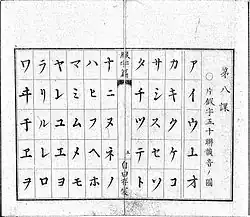 第八課
〇片假字五十聯韻音ノ圖
アイウエオ
カキクケコ
サシスセソ
タチツテト
五
ナニヌネノ
ハヒフヘホ
マミムメモ
ヤイユエヨ
ラリルレロ
ワヰ于ヱヲ